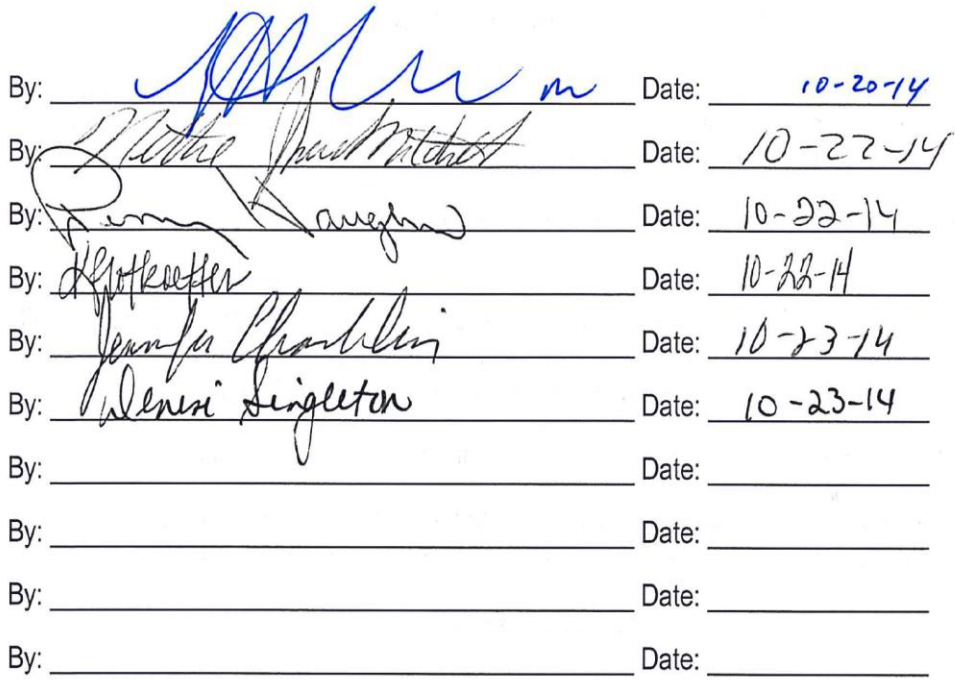 By: Date: 10-20-14
By: Nettie Mitchell Date: 10-22-14
By: Penny Vaughn Date: 10-22-14
By: Date: 10-22-14
By: Jennifer Chamblin Date: 10-23-14
By: Denise Singleton Date: 10-23-14
By: Date:
By: Date:
By: Date:
By: Date: